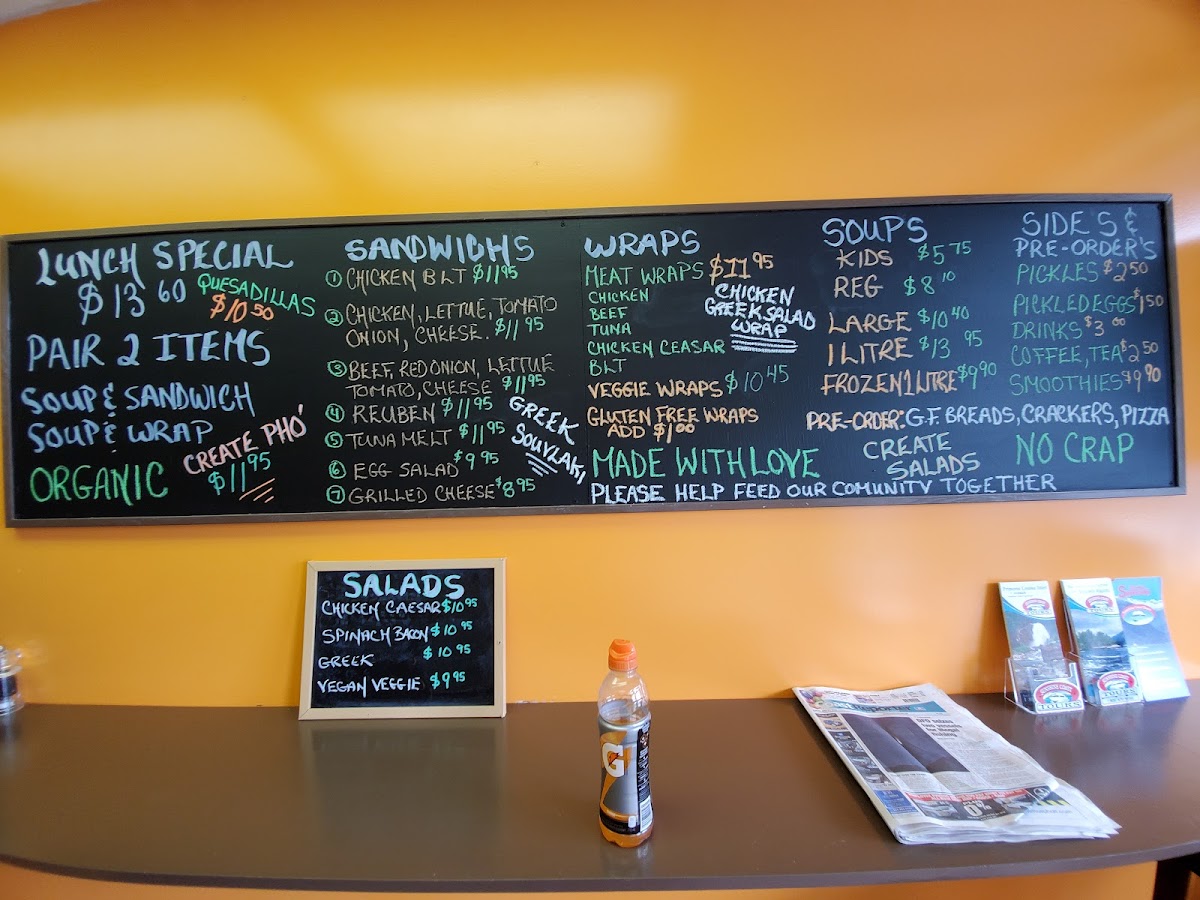 LUNCH SPECIAL
$13 60
QUESADILLAS
$10 50
PAIR 2 ITEMS
SOUP & SANDWICH
SOUP & WRAP
CREATE PHO'
$11 95
ORGANIC
SANDWICHS
① CHICKEN BLT $11 95
② CHICKEN, LETTUE, TOMATO
ONION, CHEESE. $11 95
③ BEEF, RED ONION, LETTUE
TOMATO, CHEESE $11 95
④ REUBEN $11 95
⑤ TUNA MELT $11 95
⑥ EGG SALAD $9 95
⑦ GRILLED CHEESE $8 95
GREEK
SOUVLAKI
WRAPS
MEAT WRAPS $11 95
CHICKEN
BEEF
TUNA
CHICKEN CEASAR
BLT
CHICKEN
GREEK SALAD
WRAP
VEGGIE WRAPS $10 45
GLUTEN FREE WRAPS
ADD $1 00
MADE WITH LOVE
PLEASE HELP FEED OUR COMUNITY TOGETHER
SOUPS
KIDS $5 75
REG $8 10
LARGE $10 40
1 LITRE $13 95
FROZEN 1 LITRE $9 90
PRE-ORDER: G.F. BREADS, CRACKERS, PIZZA
CREATE
SALADS
NO CRAP
SIDE'S &
PRE-ORDER'S
PICKLES $2 50
PICKLED EGGS $1 50
DRINKS $3 00
COFFEE, TEA $2 50
SMOOTHIES $9 90
SALADS
CHICKEN CAESAR $10 95
SPINACH BACON $10 95
GREEK $10 95
VEGAN VEGGIE $9 95
G
Reporter
TOURS
TOURS
0%